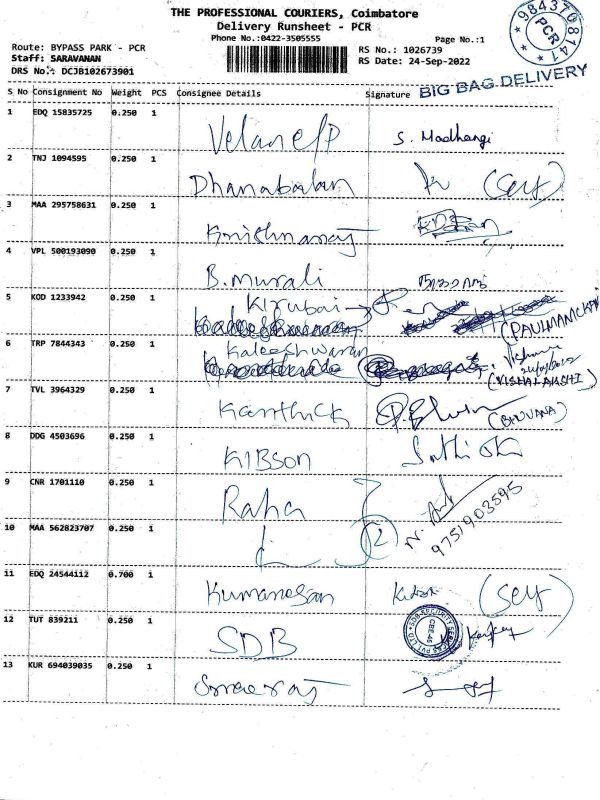 THE PROFESSIONAL COURIERS, Coimbatore
Delivery Runsheet - PCR
Phone No.:0422-3505555
Page No.:1
Route: BYPASS PARK - PCR
Staff: SARAVANAN
DRS No.: DCJB102673901
RS No.: 1026739
RS Date: 24-Sep-2022
9843708141
PCR
BIG BAG DELIVERY
S No Consignment No Weight PCS Consignee Details Signature
1 EDQ 15835725 0.250 1 S. Madhangi
2 TNJ 1094595 0.250 1 Dhanabalan (Self)
3 MAA 295758631 0.250 1 Krishnaraj
4 VPL 500193090 0.250 1 B.murali
5 KOD 1233942 0.250 1 Kirubai
6 TRP 7844343 0.250 1 Kaleeshwaran (VISHALAKSHI)
7 TVL 3964329 0.250 1 Karthick (BHUVANA)
8 DDG 4503696 0.250 1 KIBSON
9 CNR 1701110 0.250 1 Raha
10 MAA 562823707 0.250 1 (2) 9751903595
11 EDQ 24544112 0.700 1 Kumaresan (Self)
12 TUT 839211 0.250 1 SDB
13 KUR 694039035 0.250 1